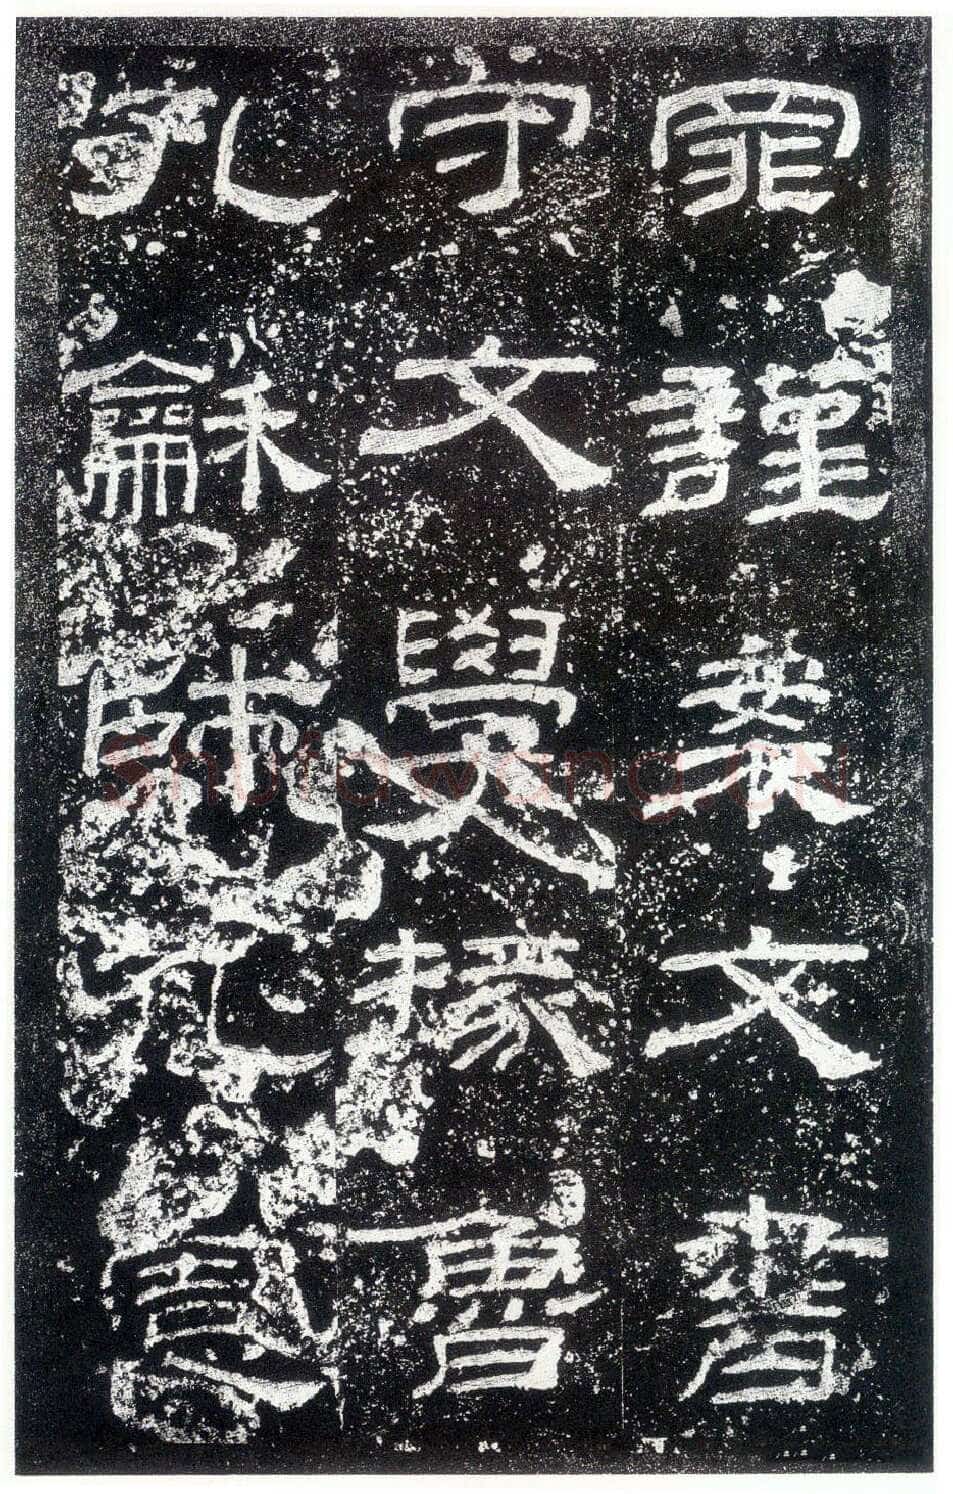 罪謹案文書
守文學掾魯
孔龢師孔憲
Shufawang.CN